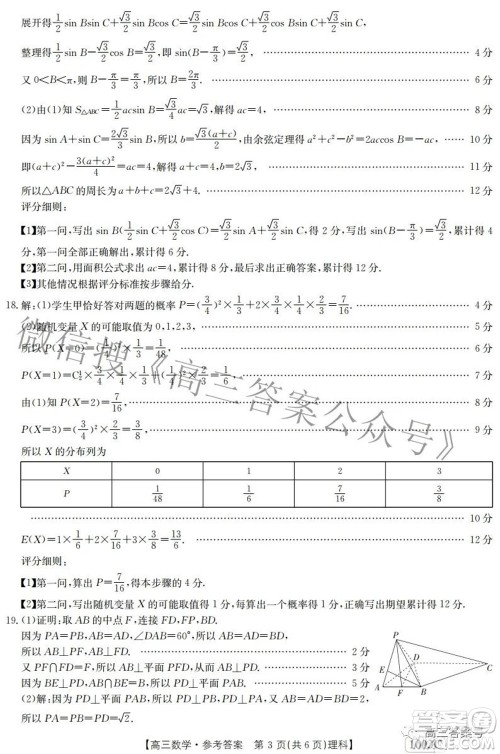 展开得1/2 sin B sin C+√3/2 sin B cos C=√3/2 sin B cos C+√3/2 cos B sin C+√3/2 sin C,
整理得1/2 sin B-√3/2 cos B=√3/2,即 sin(B-π/3)=√3/2. 4 分
又 0<B<π,则 B-π/3=π/3,所以 B=2π/3. 6 分
(2)由(1)知 S△ABC=1/2 ac sin B=√3/4 ac=√3,解得 ac=4, 8 分
因为 sin A+sin C=2√3/3 sin B,所以 b=√3(a+c)/2,由余弦定理得 a²+c²-b²=2ac cos B=-ac, 10 分
即(a+c)²-3(a+c)²/4=ac=4,解得 a+c=4. 11 分
所以△ABC 的周长为 a+b+c=2√3+4. 12 分
评分细则:
【1】第一问,写出 sin B(1/2 sin C+√3/2 cos C)=√3/2 sin A+√3/2 sin C,得 2 分,写出 sin(B-π/3)=√3/2,累计得 4
分,第一问全部正确解出,累计得 6 分.
【2】第二问,用面积公式求出 ac=4,累计得 8 分,最后求出正确答案,累计得 12 分.
【3】其他情况根据评分标准按步骤给分.
18.解:(1)学生甲恰好答对两题的概率 P=(3/4)²×1/2+2×3/4×1/4×1/2=7/16. 4 分
(2)随机变量 X 的可能取值为 0,1,2,3, 5 分
所以 P(X=0)=(1/4)²×1/3=1/48, 6 分
P(X=1)=C½×3/4×1/4×1/3+(1/4)²×2/3=1/6, 7 分
由(1)知 P(X=2)=7/16, 8 分
P(X=3)=(3/4)²×2/3=3/8. 9 分
所以 X 的分布列为
X 0 1 2 3
P 1/48 1/6 7/16 3/8
10 分
E(X)=1×1/6+2×7/16+3×3/8=13/6. 12 分
评分细则:
【1】第一问,算出 P=7/16,得本步骤 4 分.
【2】第二问,写出随机变量 X 的可能取值得 1 分,每算出一个概率得 1 分,正确写出期望累计得 12 分.
19.(1)证明:取 AB 的中点 F,连接 FD,FP,BD.
因为 PA=PB,AB=AD,∠DAB=60°,所以 AD=BD,
所以 AB⊥PF,AB⊥FD. 2 分
又 PF∩FD=F,所以 AB⊥平面 PFD,从而 AB⊥PD. 3 分
因为 BE⊥PD,AB∩BE=B,所以 PD⊥平面 PAB. 5 分
(2)解:因为 PD⊥平面 PAB,所以 PD⊥PA,PD⊥PB,
所以 PA=PB=PD=√2.
P
D
C
E
A
F
B
微信搜《高三答案公众号》
【高三数学·参考答案 第 3 页(共 6 页)理科】
高三答案号